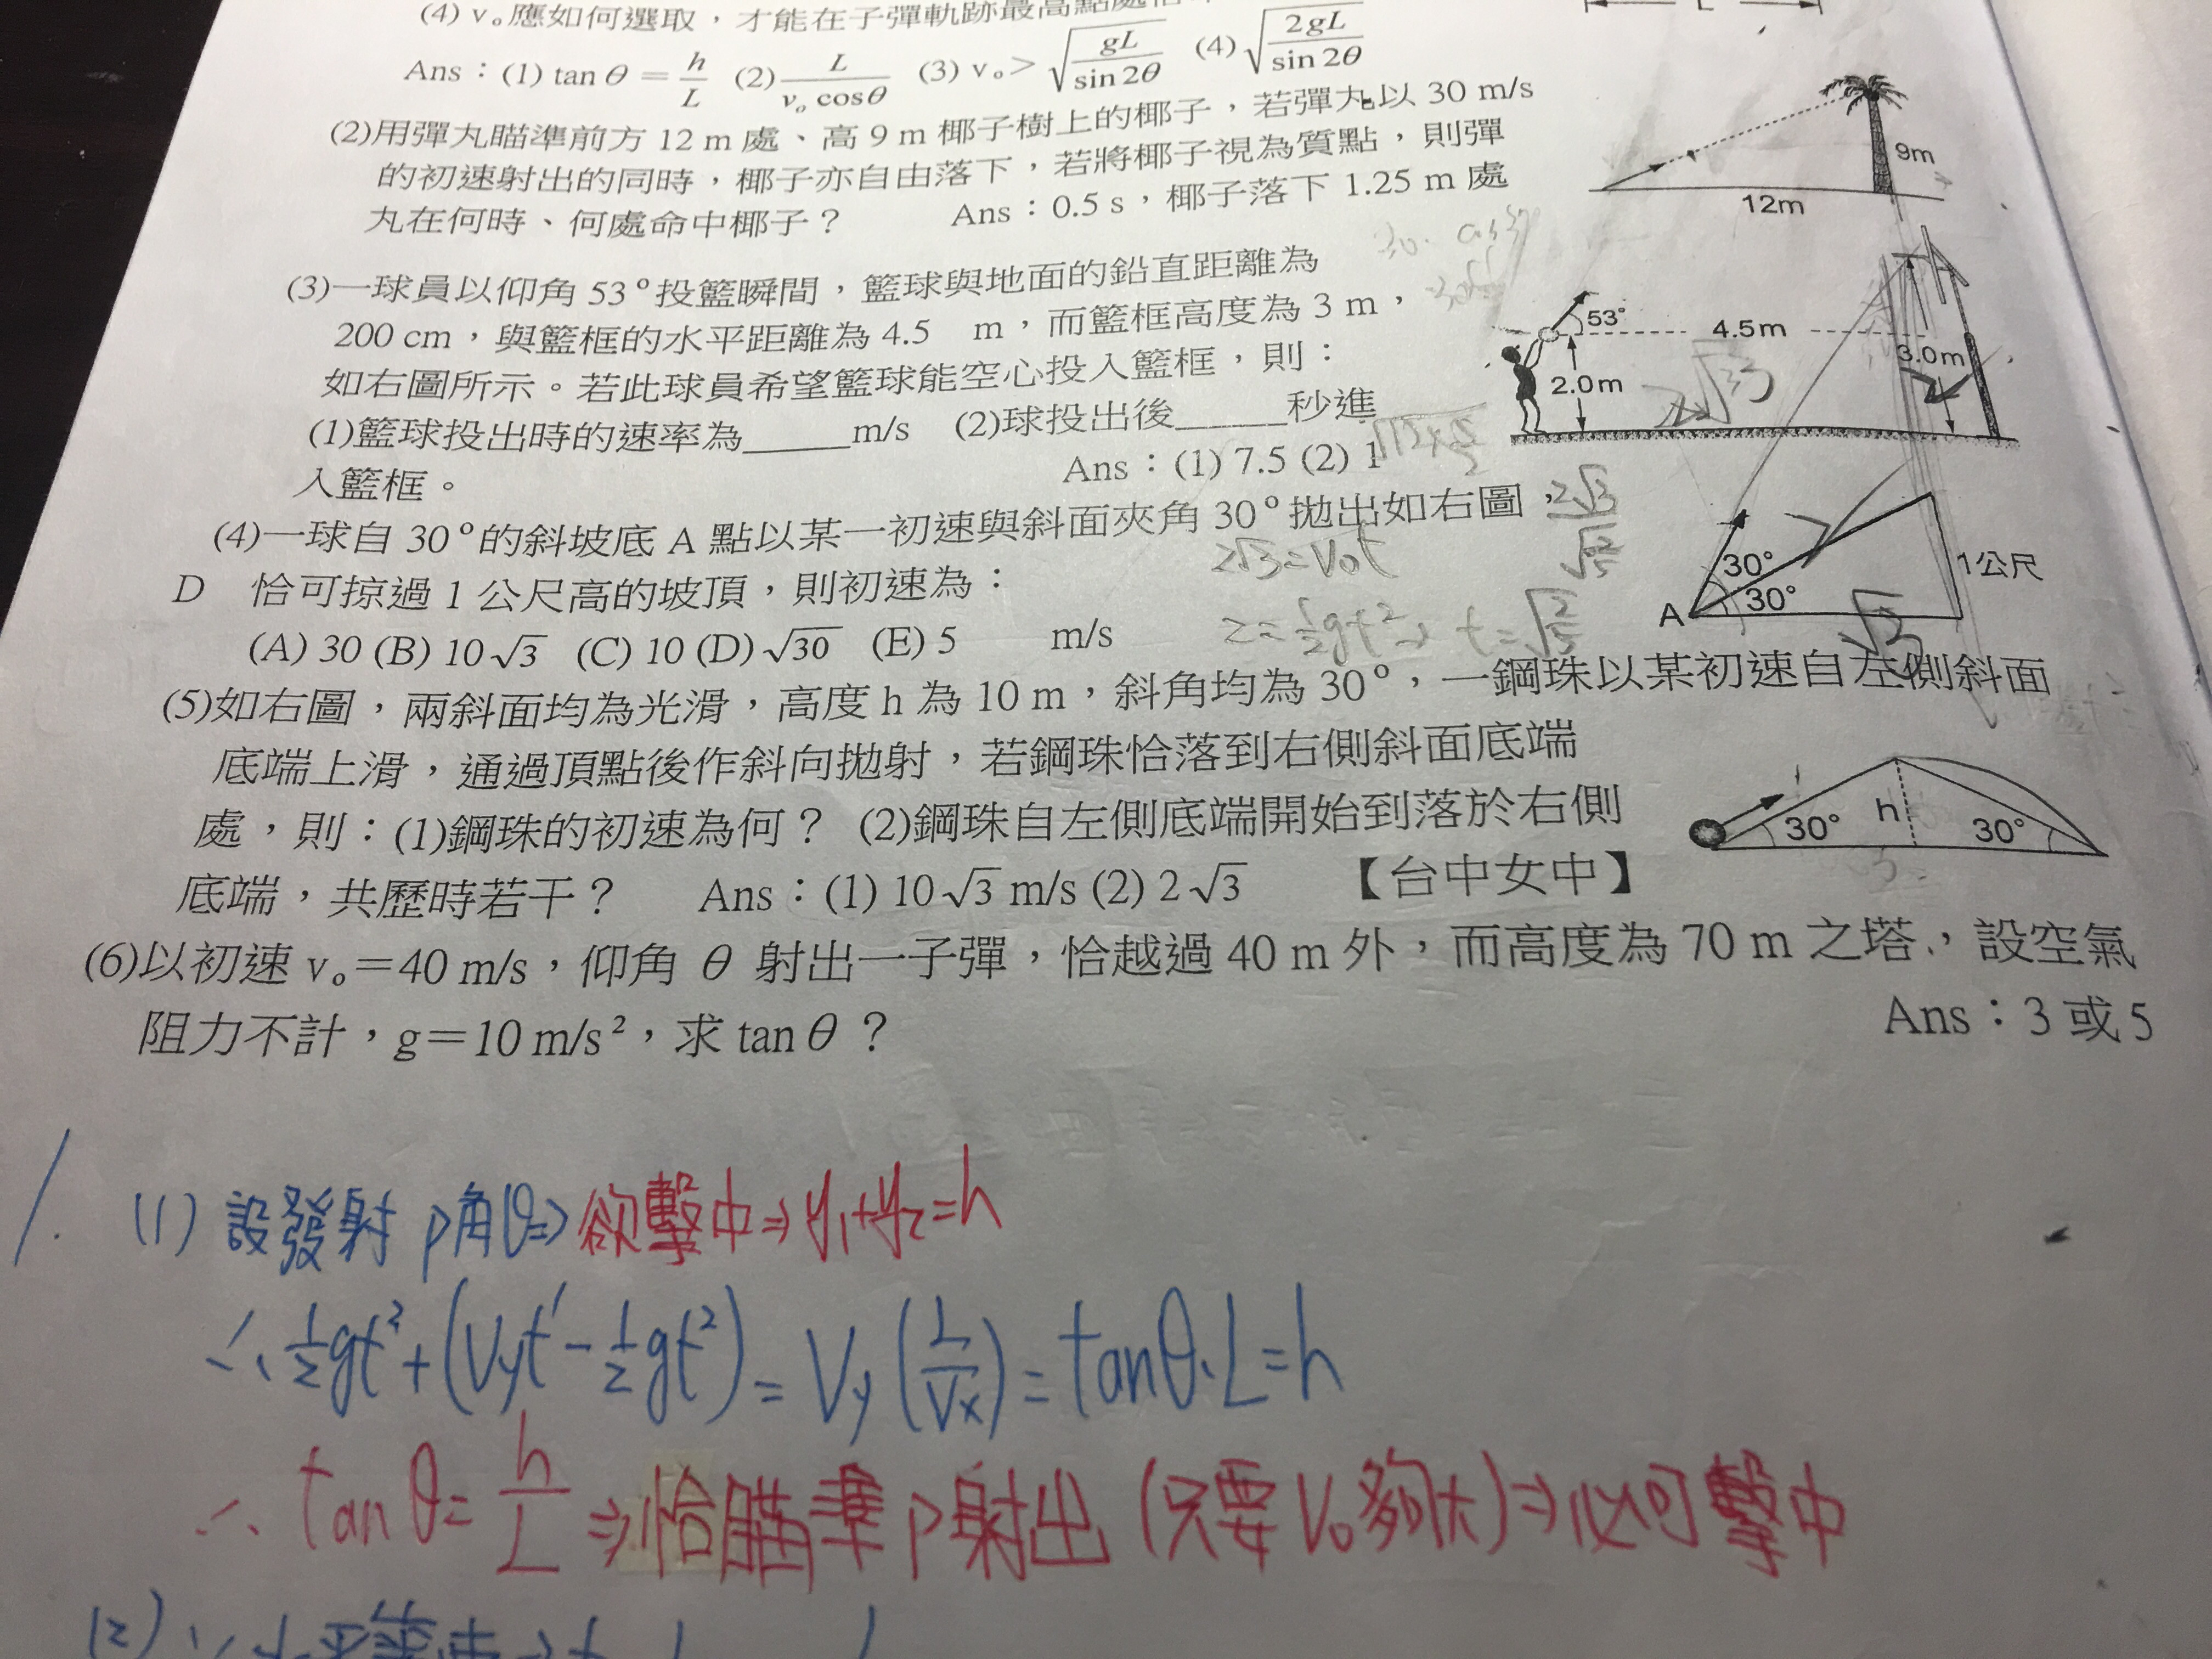 (4) v₀應如何選取，才能在子彈軌跡最高點處
L
Ans：(1) tan θ = h/L (2) L/(v₀ cosθ) (3) v₀ > √(gL/sin 2θ) (4) √(2gL/sin 2θ)
(2)用彈丸瞄準前方 12 m 處、高 9 m 椰子樹上的椰子，若彈丸以 30 m/s
的初速射出的同時，椰子亦自由落下，若將椰子視為質點，則彈
丸在何時、何處命中椰子？ Ans：0.5 s，椰子落下 1.25 m 處
9m
12m
(3)一球員以仰角 53°投籃瞬間，籃球與地面的鉛直距離為
200 cm，與籃框的水平距離為 4.5 m，而籃框高度為 3 m，
如右圖所示。若此球員希望籃球能空心投入籃框，則：
(1)籃球投出時的速率為_____m/s (2)球投出後_____秒進
入籃框。 Ans：(1) 7.5 (2) 1
53°
4.5m
3.0m
2.0m
2√3
(4)一球自 30°的斜坡底 A 點以某一初速與斜面夾角 30°拋出如右圖，
D 恰可掠過 1 公尺高的坡頂，則初速為：
(A) 30 (B) 10√3 (C) 10 (D) √30 (E) 5 m/s
2√3=V₀t
2=½gt²→ t=√(2/5)
30°
30°
A
1公尺
2
√3
(5)如右圖，兩斜面均為光滑，高度 h 為 10 m，斜角均為 30°，一鋼珠以某初速自左側斜面
底端上滑，通過頂點後作斜向拋射，若鋼珠恰落到右側斜面底端
處，則：(1)鋼珠的初速為何？ (2)鋼珠自左側底端開始到落於右側
底端，共歷時若干？ Ans：(1) 10√3 m/s (2) 2√3 【台中女中】
30°
h
30°
(6)以初速 v₀＝40 m/s，仰角 θ 射出一子彈，恰越過 40 m 外，而高度為 70 m 之塔，設空氣
阻力不計，g＝10 m/s²，求 tan θ？ Ans：3 或 5
1. (1) 設發射 P角θ⇒欲擊中⇒y₁+y₂=h
∴½gt²+(Vyt-½gt²)=Vy(L/Vx)=tanθ·L=h
∴tanθ=h/L⇒恰瞄準P射出(只要V₀夠大)⇒必可擊中
(2)